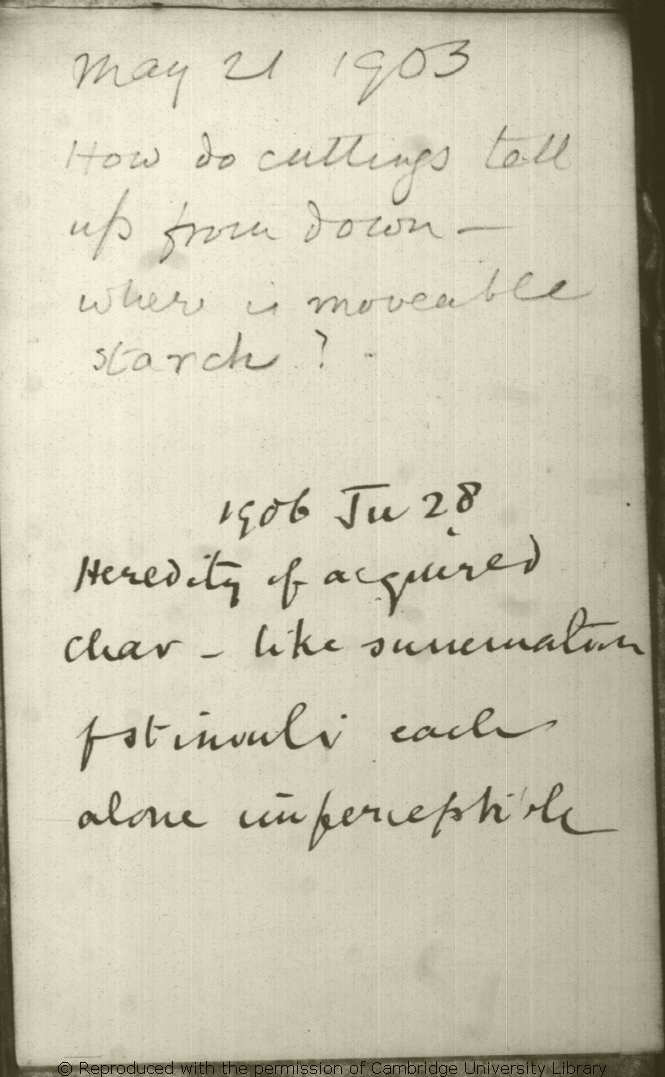 May 21 1903
How do cuttings tell
up from down —
where is moveable
starch? .
1906 Ju 28
Heredity of acquired
char – like summation
of stimuli each
alone imperceptible
© Reproduced with the permission of Cambridge University Library